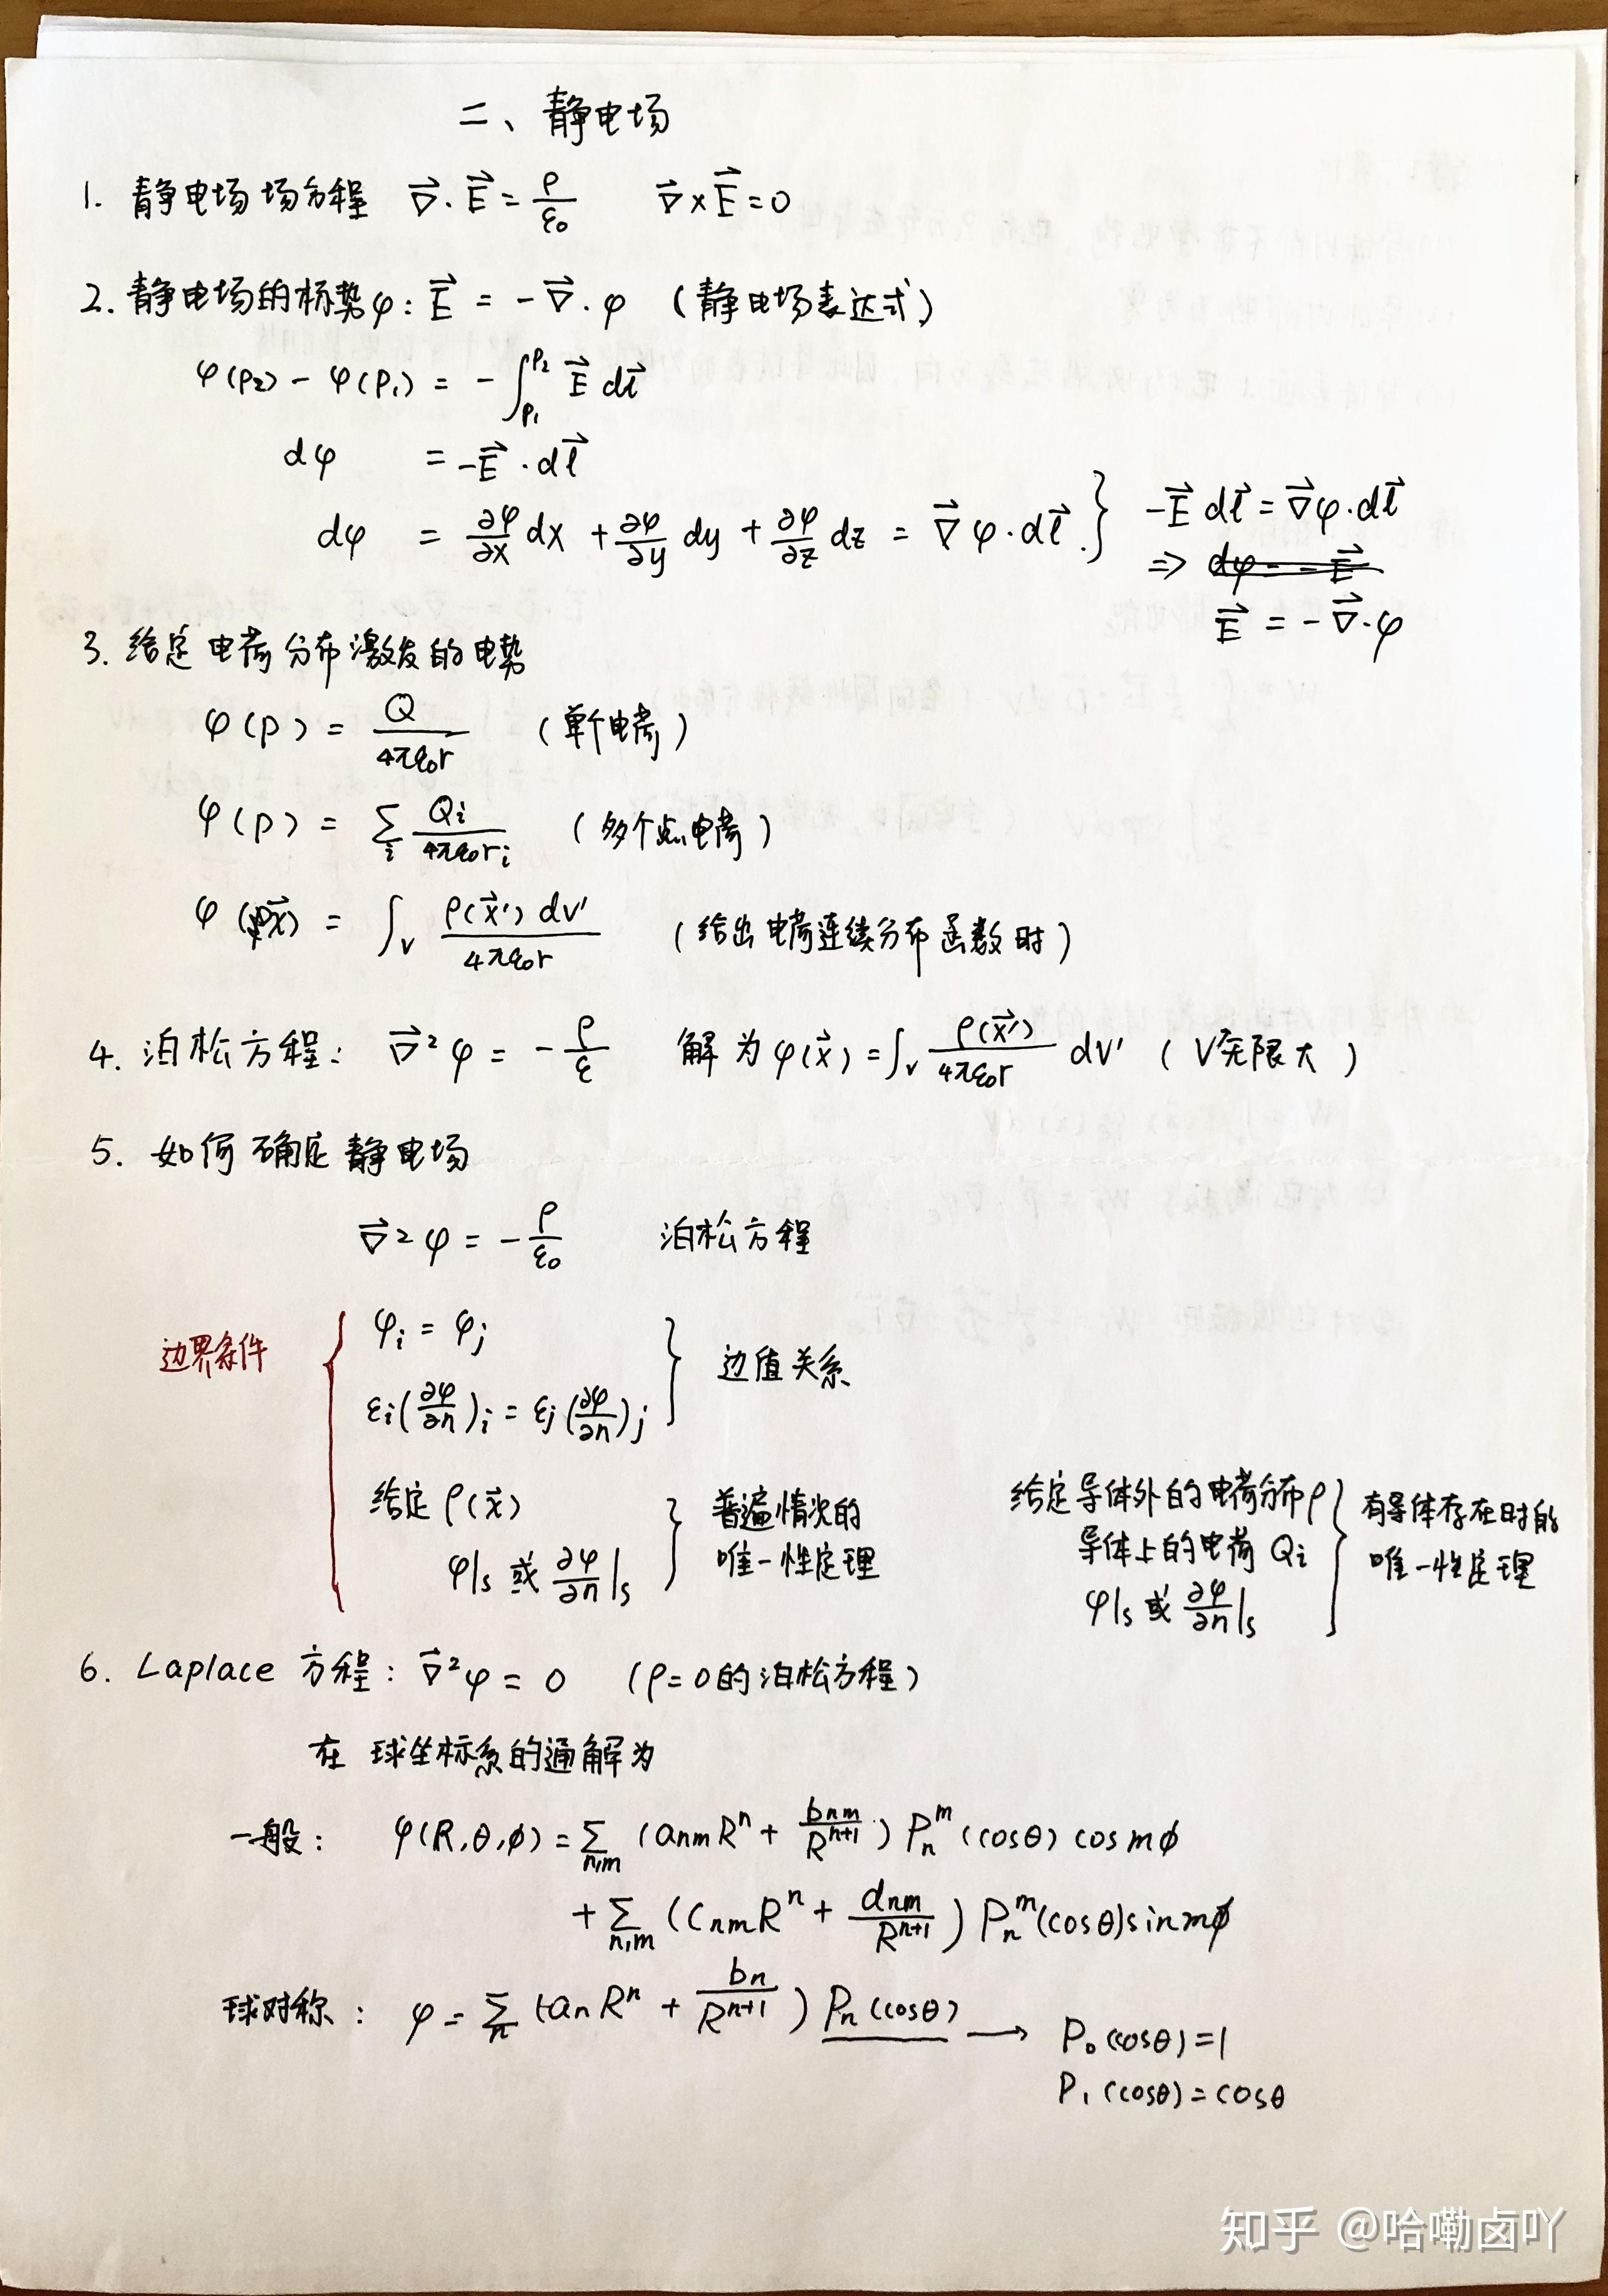 二、静电场
1. 静电场场方程 $\vec{\nabla}\cdot\vec{E}=\frac{\rho}{\varepsilon_0}$ $\vec{\nabla}\times\vec{E}=0$
2. 静电场的标势φ: $\vec{E}=-\vec{\nabla}\cdot\varphi$ (静电场表达式)
$\varphi(P_2)-\varphi(P_1)=-\int_{P_1}^{P_2}\vec{E}\,d\vec{l}$
$d\varphi=-\vec{E}\cdot d\vec{l}$
$d\varphi=\frac{\partial\varphi}{\partial x}dx+\frac{\partial\varphi}{\partial y}dy+\frac{\partial\varphi}{\partial z}dz=\vec{\nabla}\varphi\cdot d\vec{l}$ } $-\vec{E}\,d\vec{l}=\vec{\nabla}\varphi\cdot d\vec{l}$
⇒ $\vec{E}=-\vec{\nabla}\cdot\varphi$
3. 给定电荷分布激发的电势
$\varphi(P)=\frac{Q}{4\pi\varepsilon_0 r}$ (单个电荷)
$\varphi(P)=\sum_i\frac{Q_i}{4\pi\varepsilon_0 r_i}$ (多个点电荷)
$\varphi(\vec{x})=\int_V\frac{\rho(\vec{x}')dv'}{4\pi\varepsilon_0 r}$ (给出电荷连续分布函数时)
4. 泊松方程: $\vec{\nabla}^2\varphi=-\frac{\rho}{\varepsilon}$ 解为 $\varphi(\vec{x})=\int_V\frac{\rho(\vec{x}')}{4\pi\varepsilon_0 r}dv'$ (V无限大)
5. 如何确定静电场
$\vec{\nabla}^2\varphi=-\frac{\rho}{\varepsilon_0}$ 泊松方程
边界条件 { $\varphi_i=\varphi_j$
$\varepsilon_i(\frac{\partial\varphi}{\partial n})_i=\varepsilon_j(\frac{\partial\varphi}{\partial n})_j$ } 边值关系
给定 $\rho(\vec{x})$
$\varphi|_S$ 或 $\frac{\partial\varphi}{\partial n}|_S$ } 普遍情况的
唯一性定理
给定导体外的电荷分布ρ
导体上的电荷 $Q_i$
$\varphi|_S$ 或 $\frac{\partial\varphi}{\partial n}|_S$ } 有导体存在时的
唯一性定理
6. Laplace 方程: $\vec{\nabla}^2\varphi=0$ (ρ=0的泊松方程)
在 球坐标系的通解为
一般: $\varphi(R,\theta,\phi)=\sum_{n,m}(a_{nm}R^n+\frac{b_{nm}}{R^{n+1}})P_n^m(\cos\theta)\cos m\phi$
$+\sum_{n,m}(C_{nm}R^n+\frac{d_{nm}}{R^{n+1}})P_n^m(\cos\theta)\sin m\phi$
球对称: $\varphi=\sum_n(a_nR^n+\frac{b_n}{R^{n+1}})P_n(\cos\theta)$ → $P_0(\cos\theta)=1$
$P_1(\cos\theta)=\cos\theta$
知乎 @哈嘞卤吖